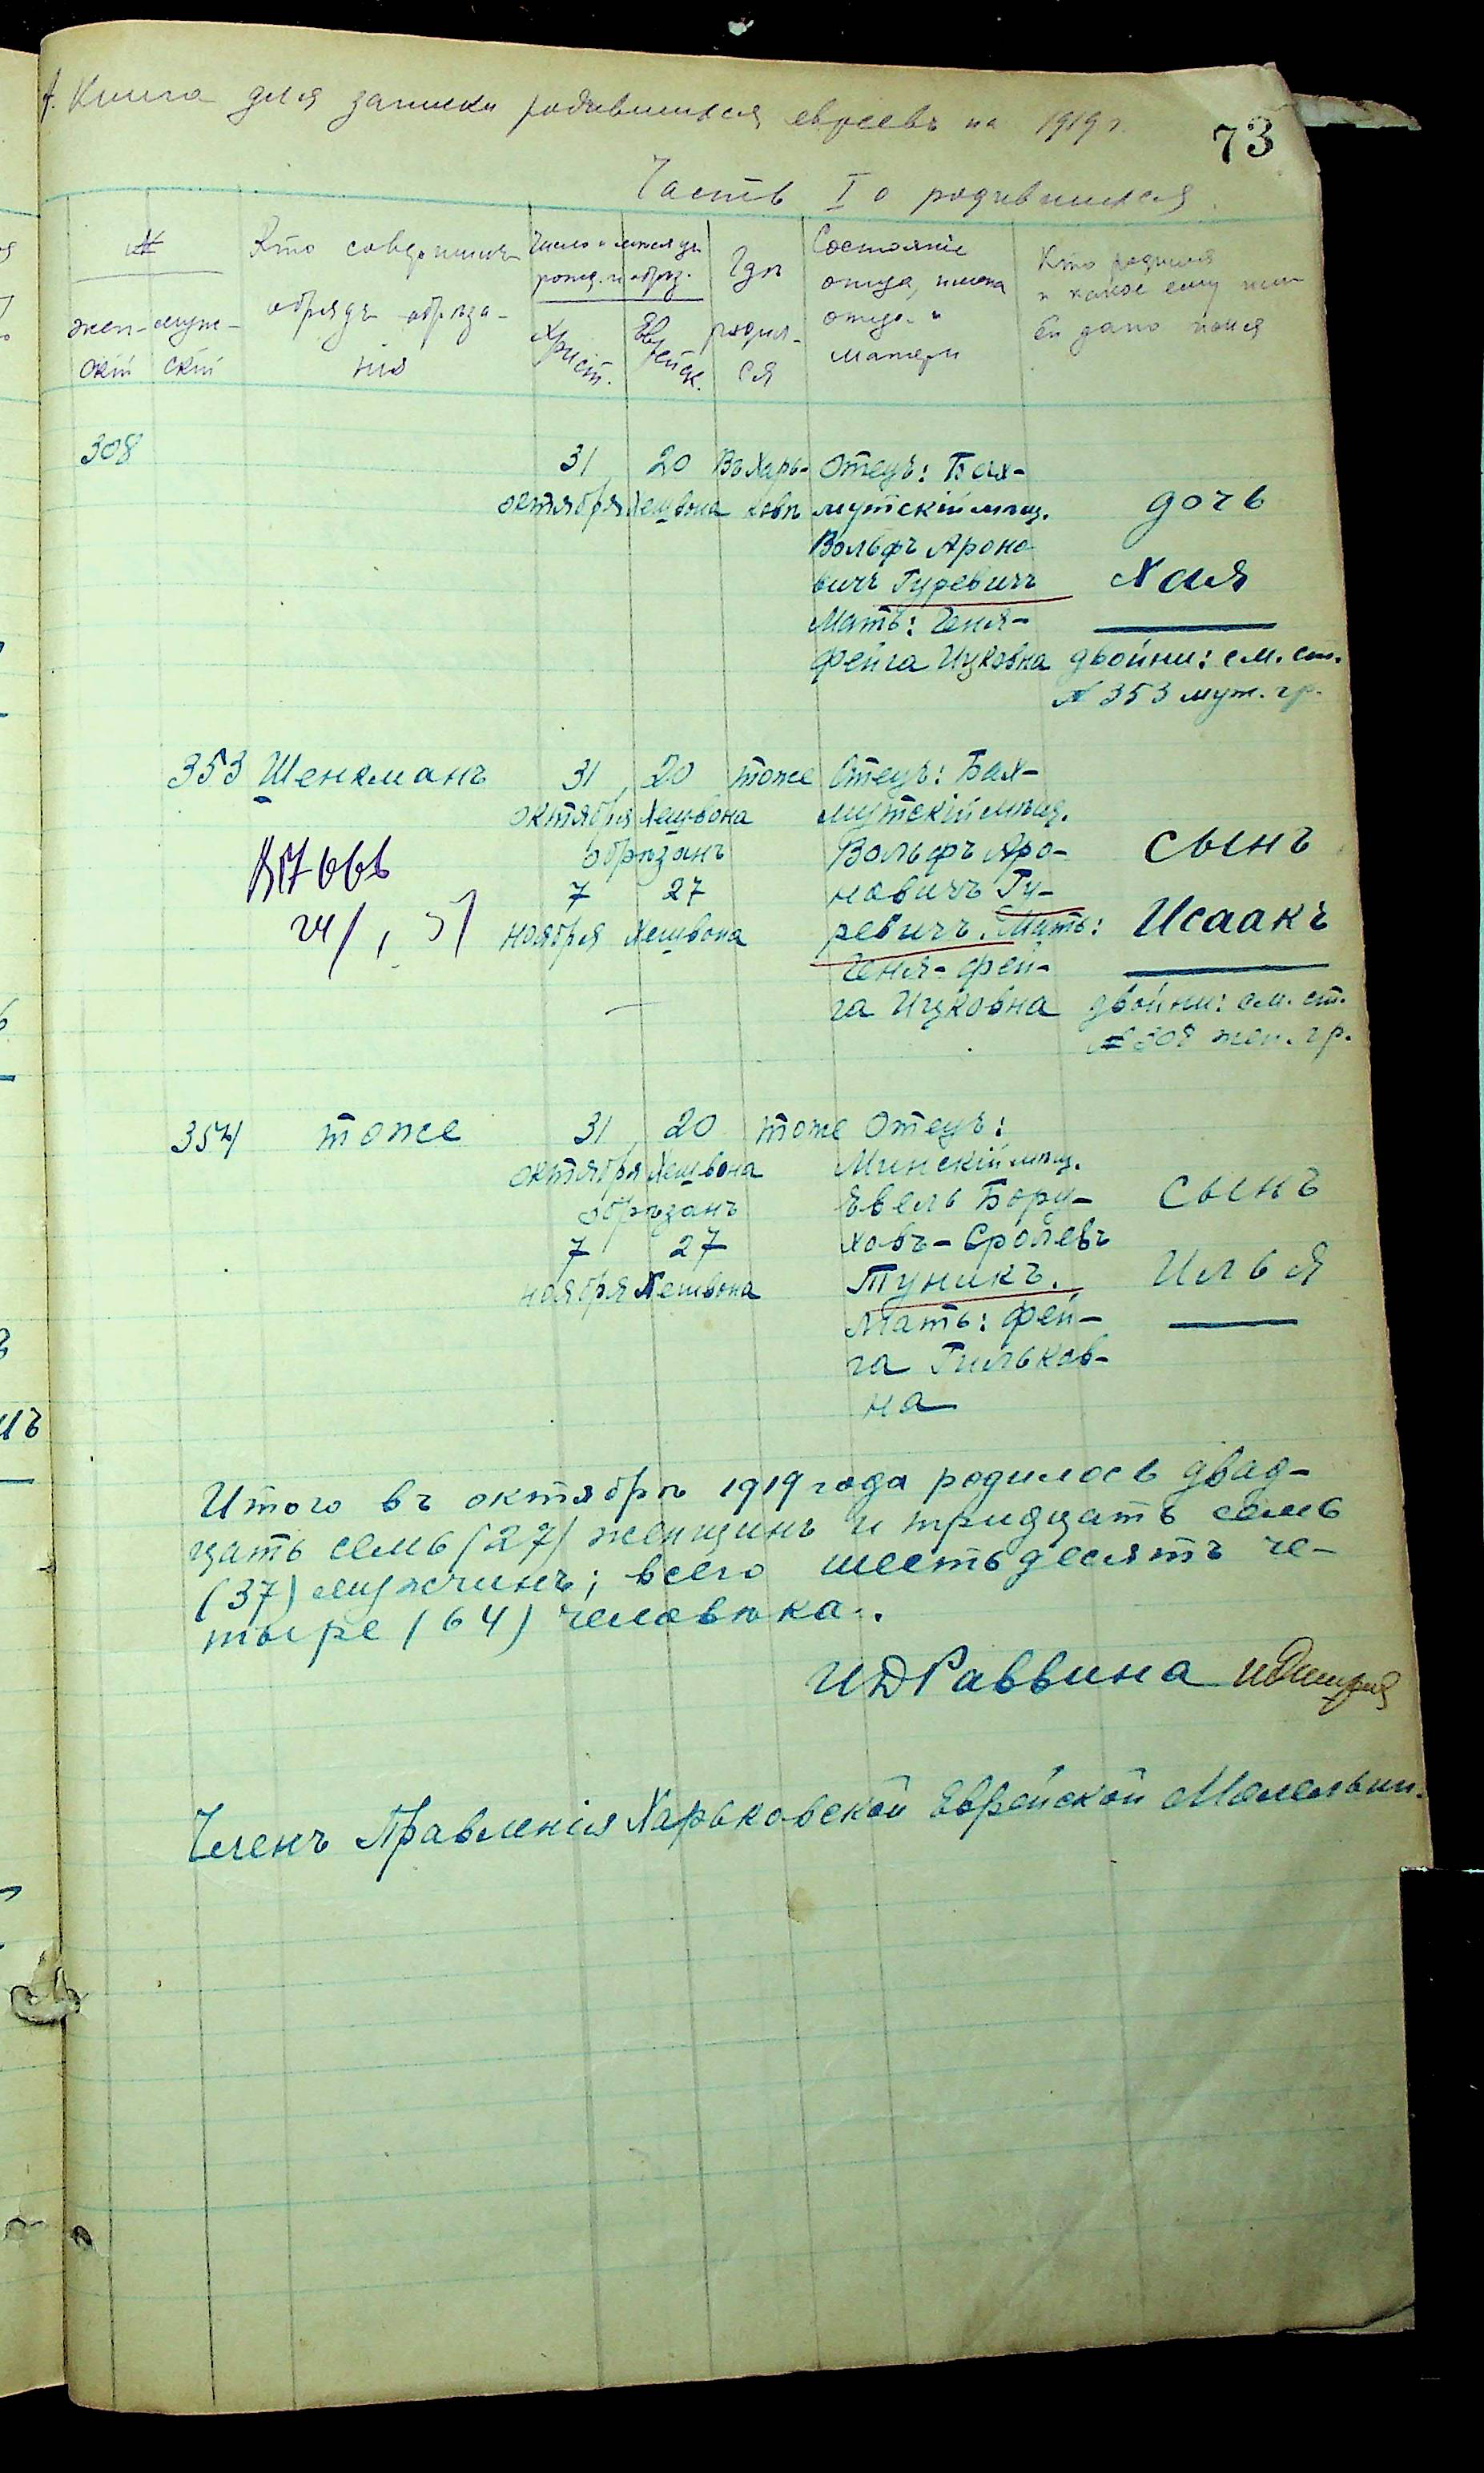 Книга для записки родившихся евреевъ на 1919 г.
73
Часть I о родившихся
№
жен-
скій
муж-
скій
Кто совершилъ
обрядъ обрѣза-
нія
Число и мѣсяцъ
рожд. и обрѣз.
Христ.
Еврейск.
Гдѣ
родил-
ся
Состояніе
отца, имена
отца и
матери
Кто родился
и какое ему или
ей дано имя
308
31
октября
20
Хешвона
Въ Харь-
ковѣ
Отецъ: Бах-
мутскій мѣщ.
Вольфъ Ароно-
вичъ Гуревичъ
Мать: Геня-
Фейга Ицковна
дочь
Хая
двойни: см. ст.
№ 353 муж. гр.
353
Шенкманъ
31
октября
20
Хешвона
обрѣзанъ
7
27
ноября
Хешвона
тоже
Отецъ: Бах-
мутскій мѣщ.
Вольфъ Аро-
новичъ Гу-
ревичъ. Мать:
Геня-Фей-
га Ицковна
сынъ
Исаакъ
двойни: см. ст.
№ 308 жен. гр.
354
тоже
31
октября
20
Хешвона
обрѣзанъ
7
27
ноября
Хешвона
тоже
Отецъ:
Минскій мѣщ.
Евель Бору-
ховъ-Сролевъ
Туникъ.
Мать: Фей-
га Гильков-
на
сынъ
Илья
Итого въ октябрѣ 1919 года родилось двад-
цать семь (27) женщинъ и тридцать семь
(37) мужчинъ; всего шестьдесятъ че-
тыре (64) человѣка.
ИД Раввина
Членъ Правленія Харьковской Еврейской Молельни.